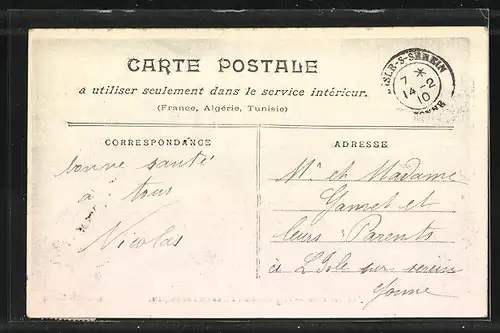 CARTE POSTALE
à utiliser seulement dans le service intérieur.
(France, Algérie, Tunisie)
CORRESPONDANCE
bonne santé
à tous
Nicolas
ADRESSE
Mr et Madame
et
leurs Parents
à L'Isle sur serein
Yonne
ISLE-S-SEREIN
7 *
14 -2
10
YONNE